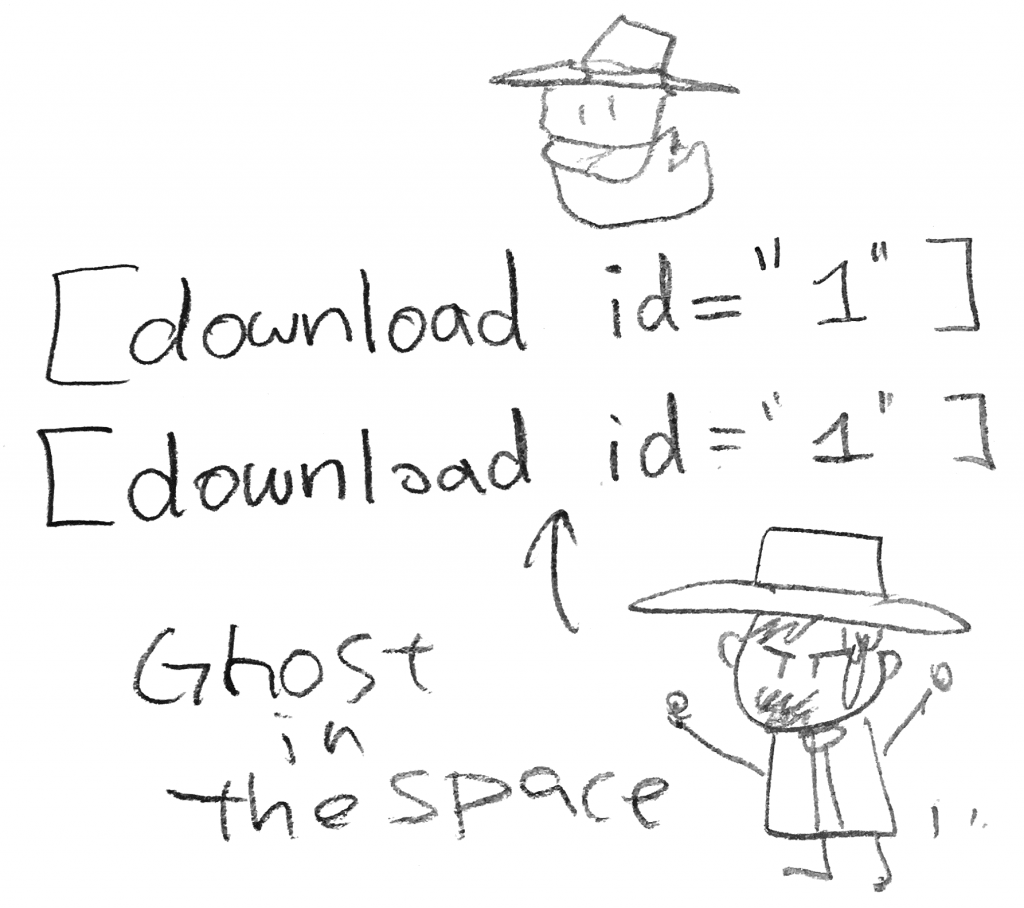 [download id="1"]
[download id="1"]
Ghost
in
the space